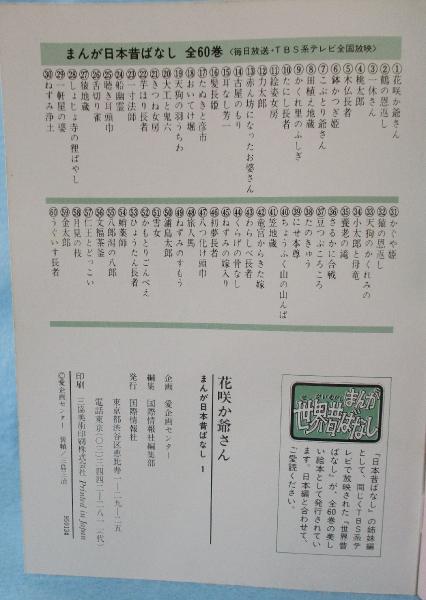 まんが日本昔ばなし 全60巻〈毎日放送・TBS系テレビ全国放映〉
①花咲か爺さん
②鶴の恩返し
③一休さん
④桃太郎
⑤木仏長者
⑥鉢かつぎ姫
⑦こぶとり爺さん
⑧田植え地蔵
⑨かくれ里のふしぎ
⑩たにし長者
⑪絵姿女房
⑫力太郎
⑬赤ん坊になったお婆さん
⑭古屋のもり
⑮耳なし芳一
⑯髪長姫
⑰たぬきと彦市
⑱おいてけ堀
⑲天狗の羽うちわ
⑳大工と鬼六
㉑きつね女房
㉒芋ほり長者
㉓一寸法師
㉔船幽霊
㉕聴き耳頭巾
㉖舌切り雀
㉗猿地蔵
㉘しょじょ寺の狸ばやし
㉙一軒屋の婆
㉚ねずみ浄土
㉛かぐや姫
㉜猿の恩返し
㉝天狗のかくれみの
㉞小太郎と母竜
㉟養老の滝
㊱さるかに合戦
㊲豆つぶころころ
㊳たのきゅう
㊴にせ本尊
㊵ちょうふく山の山んば
㊶笠地蔵
㊷竜宮からきた嫁
㊸わらしべ長者
㊹くらげの骨なし
㊺ねずみの嫁入り
㊻初夢長者
㊼八つ化け頭巾
㊽旅人馬
㊾ねずみのすもう
㊿浦島太郎
51雪女
52かもとりごんべえ
53ひょうたん長者
54蛸薬師
55八郎潟の八郎
56文福茶釜
57仁王とどっこい
58月見の枝
59金太郎
60うぐいす長者
まんが
世界昔ばなし
「日本昔ばなし」の姉妹編
として、同じくTBS系テ
レビで放映された「世界昔
ばなし」が、全60巻の美し
い絵本として発行されてい
ます。日本編と合わせて、
ご愛読ください。
花咲か爺さん
まんが日本昔ばなし 1
企画 愛企画センター
編集 国際情報社編集部
発行 国際情報社
印刷 三區美術印刷株式会社 Printed in Japan
Ⓒ愛企画センター